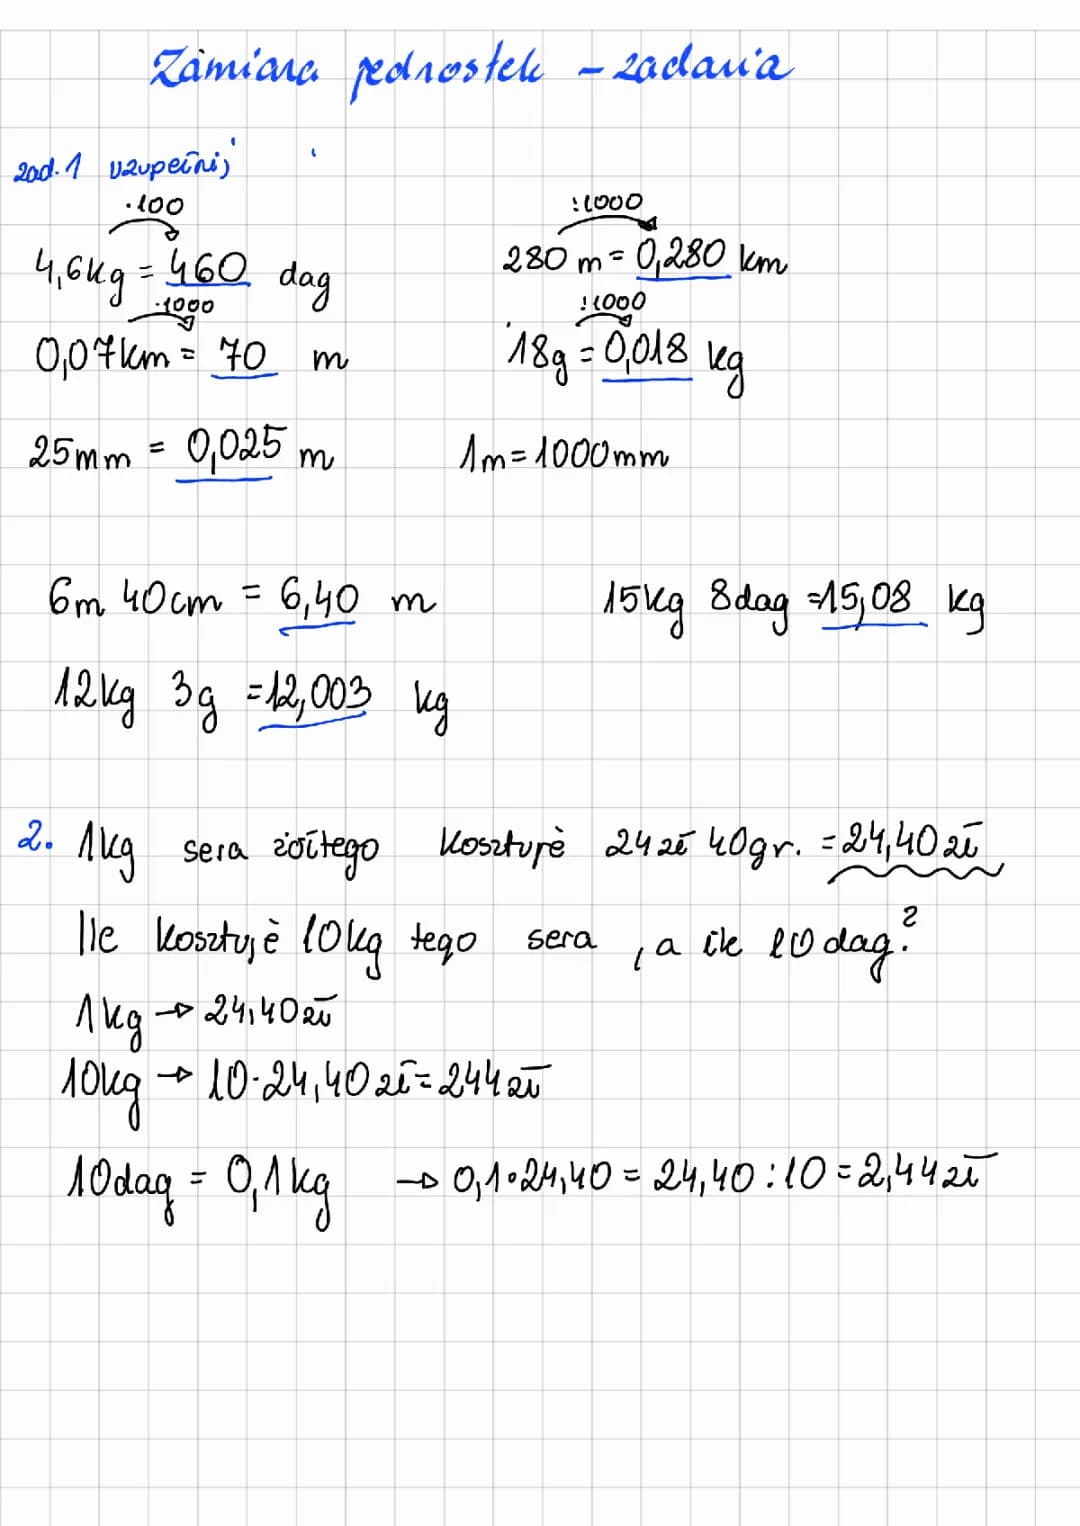 Zamiana jednostek - zadania
zad. 1 uzupełnij
·100 :1000
4,6kg = 460 dag 280 m = 0,280 km
·1000 :1000
0,07km = 70 m 18g = 0,018 kg
25mm = 0,025 m 1m = 1000mm
6m 40cm = 6,40 m 15kg 8dag = 15,08 kg
12kg 3g = 12,003 kg
2. 1kg sera żółtego kosztuje 24 zł 40gr. = 24,40 zł
Ile kosztuje 10kg tego sera , a ile 10 dag?
1kg → 24,40 zł
10kg → 10·24,40 zł = 244 zł
10dag = 0,1kg → 0,1·24,40 = 24,40 : 10 = 2,44 zł